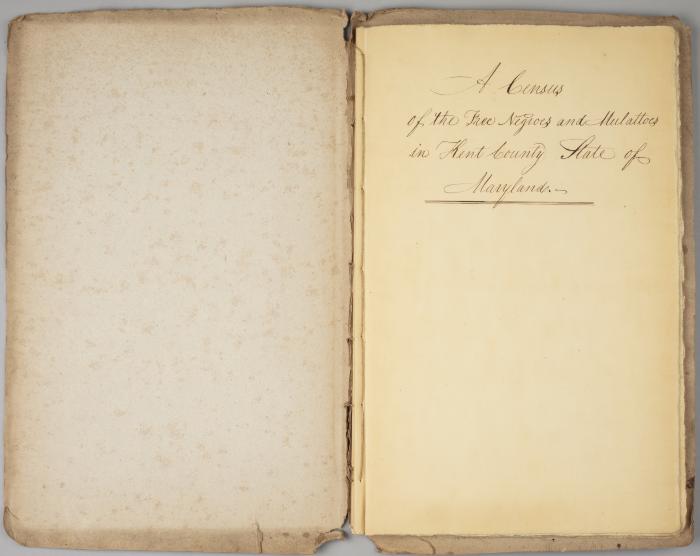 A Census
of the Free Negroes and Mulattoes
in Kent County State of
Maryland.